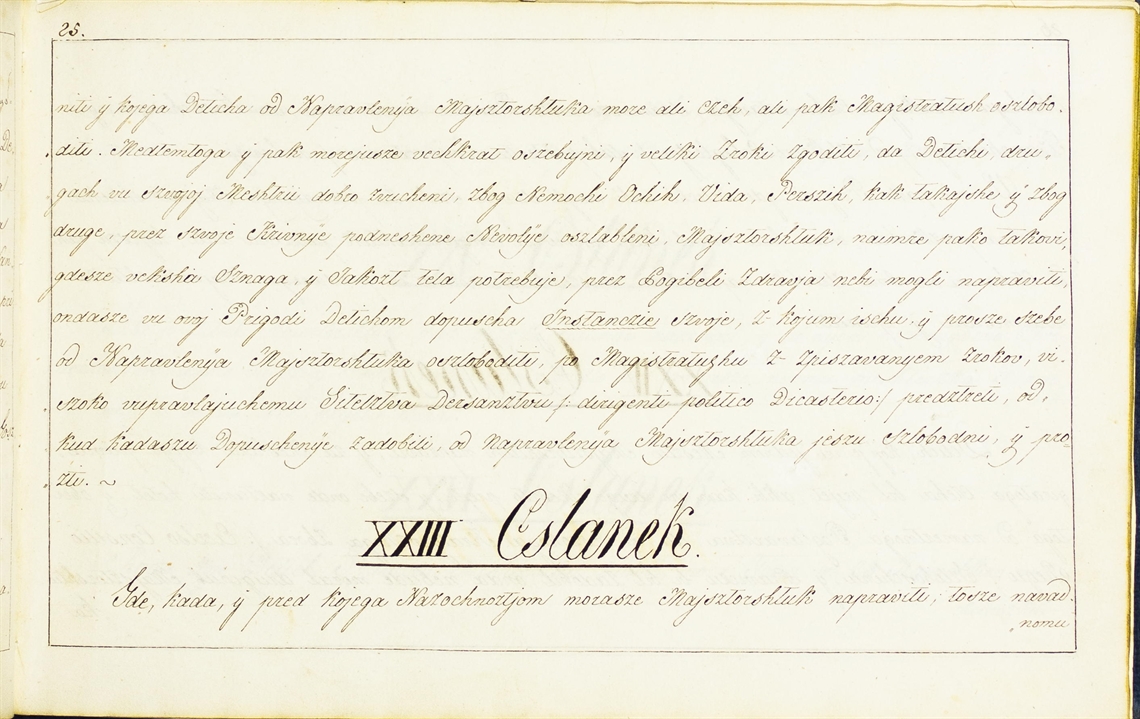 25.
niti ÿ kojega Deticha od Napravlenÿa Majsztorshtuka more ali Czeh, ali pak Magistratush oszlobo-
diti. Medtemtoga ÿ pak morejusze vechkrat oszebujni, ÿ veliki Zroki Zgoditi, da Detichi, dru-
gach vu szvojoj Meshtrii dobro zvucheni, zbog Nemochi Ochih, Vida, Perszih, kak takajshe, ÿ zbog
druge, prez szvoje Krivnÿe podneshene Nevolÿe oszlableni, Majsztorshtuk, naimre pako takovi,
gdesze vekshá Sznaga, ÿ Jakozt tela potrebuje, prez Pogibeli Zdravja nebi mogli napraviti,
ondasze vu ovoj Prigodi Detichom dopuscha Instanczie szvoje, z kojum ischu, ÿ prosze szebe
od Napravlenÿa Majsztorshtuka oszloboditi, po Magistratushu z Zpiszavanyem Zrokov, vi-
szoko vupravlajuchemu Sitelztva Dersanztvu /: dirigenti politico Dicasterio:/ predztreti, od-
kud kadaszu Dopuschenÿe zadobili, od Napravlenÿa Majsztorshtuka jeszu szlobodni, ÿ pro-
zti. ~
XXIII Cslanek.
Gde, kada, ÿ pred kojega Nazochnoztjom morasze Majsztorshtuk napraviti; tosze navad-
nomu